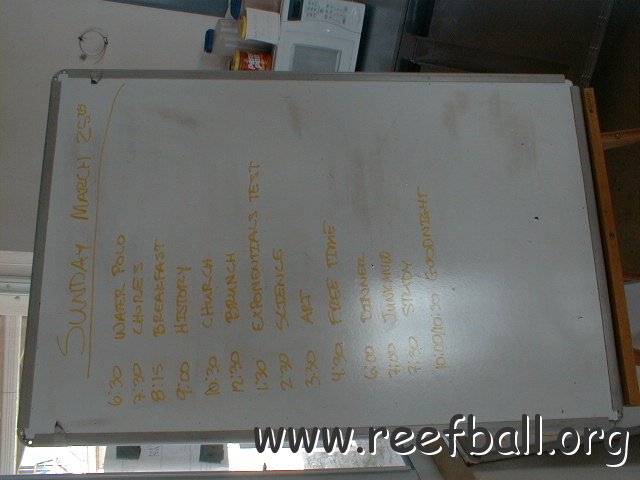 SUNDAY MARCH 25TH
6:30 WATER POLO
7:30 CHORES
8:15 BREAKFAST
9:00 HISTORY
10:30 CHURCH
12:30 BRUNCH
1:30 EXPONOUTIALS TEST
2:30 SCIENCE
3:30 ART
4:30 FREE TIME
6:00 DINNER
7:00
7:30 STUDY
10:00/10:30 GOODNIGHT
www.reefball.org